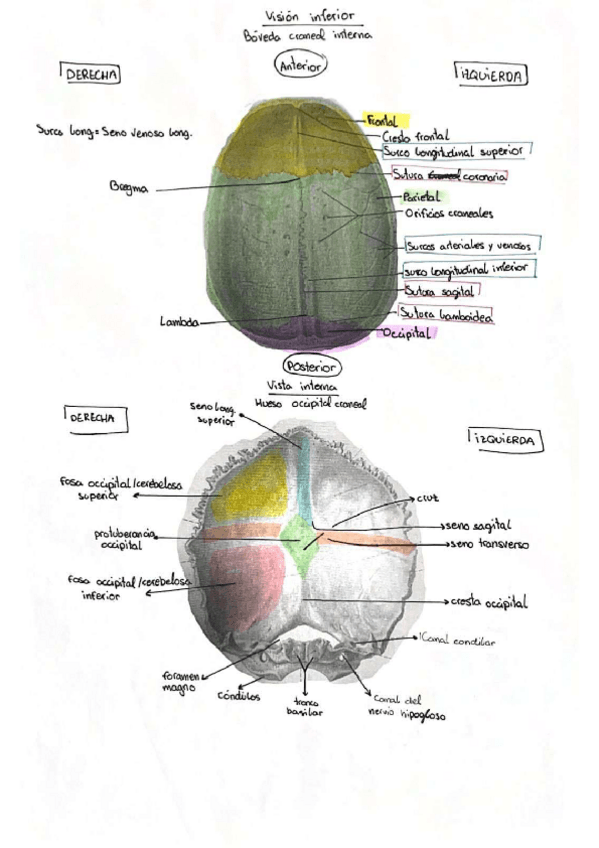 Visión inferior
Bóveda craneal interna
Anterior
DERECHA
IZQUIERDA
Frontal
Cresta frontal
Surco longitudinal superior
Surco Long = Seno venoso long.
Sutura coronaria
Bregma
Parietal
Orificios craneales
Surcos arteriales y venosos
surco longitudinal inferior
Sutura sagital
Sutura lambdoidea
Lambda
Occipital
Posterior
Vista interna
Hueso occipital craneal
DERECHA
seno long.
superior
IZQUIERDA
fosa occipital/cerebelosa
superior
cruz
seno sagital
protuberancia
occipital
seno transverso
fosa occipital/cerebelosa
inferior
cresta occipital
Canal condilar
foramen
magno
cóndilos
tronco
basilar
Canal del
nervio hipogloso